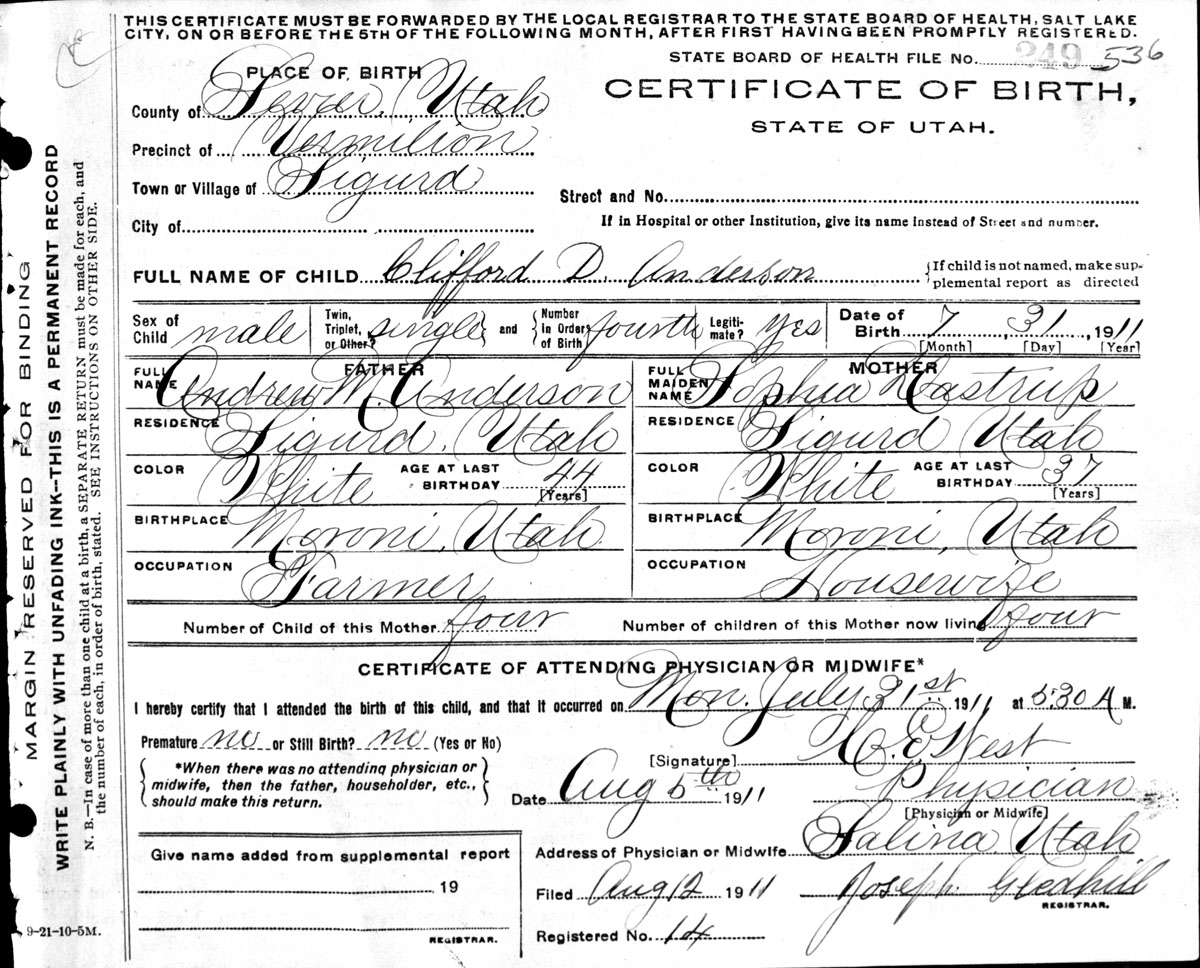 THIS CERTIFICATE MUST BE FORWARDED BY THE LOCAL REGISTRAR TO THE STATE BOARD OF HEALTH, SALT LAKE
CITY, ON OR BEFORE THE 5TH OF THE FOLLOWING MONTH, AFTER FIRST HAVING BEEN PROMPTLY REGISTERED.
STATE BOARD OF HEALTH FILE NO. 249 536
PLACE OF BIRTH
CERTIFICATE OF BIRTH,
STATE OF UTAH.
County of Sevier, Utah
Precinct of Vermilion
Town or Village of Sigurd
Street and No.
City of
If in Hospital or other Institution, give its name instead of Street and number.
FULL NAME OF CHILD Clifford D. Anderson
{If child is not named, make sup-
plemental report as directed
Sex of Child male
Twin, Triplet, or Other? single} and {Number in Order of Birth fourth
Legiti-mate? yes
Date of Birth 7 31, 1911
[Month] [Day] [Year]
FATHER
FULL NAME Andrew M. Anderson
RESIDENCE Sigurd, Utah
COLOR White AGE AT LAST BIRTHDAY 44
[Years]
BIRTHPLACE Moroni, Utah
OCCUPATION Farmer
MOTHER
FULL MAIDEN NAME Sophia Kastrup
RESIDENCE Sigurd Utah
COLOR White AGE AT LAST BIRTHDAY 37
[Years]
BIRTHPLACE Moroni, Utah
OCCUPATION Housewife
Number of Child of this Mother four Number of children of this Mother now living four
CERTIFICATE OF ATTENDING PHYSICIAN OR MIDWIFE*
I hereby certify that I attended the birth of this child, and that it occurred on Mon. July 31st 1911 at 5:30 A M.
Premature no or Still Birth? no (Yes or No)
*When there was no attending physician or
midwife, then the father, householder, etc.,
should make this return.
[Signature] E. West
Physician
Date Aug 5th 1911
[Physician or Midwife]
Address of Physician or Midwife Salina Utah
Give name added from supplemental report
19
REGISTRAR.
Filed Aug 12 1911 Joseph Gledhill
REGISTRAR.
Registered No. 14
9-21-10-5M.
MARGIN RESERVED FOR BINDING
WRITE PLAINLY WITH UNFADING INK--THIS IS A PERMANENT RECORD
N. B.—In case of more than one child at a birth, a SEPARATE RETURN must be made for each, and
the number of each, in order of birth, stated. SEE INSTRUCTIONS ON OTHER SIDE.